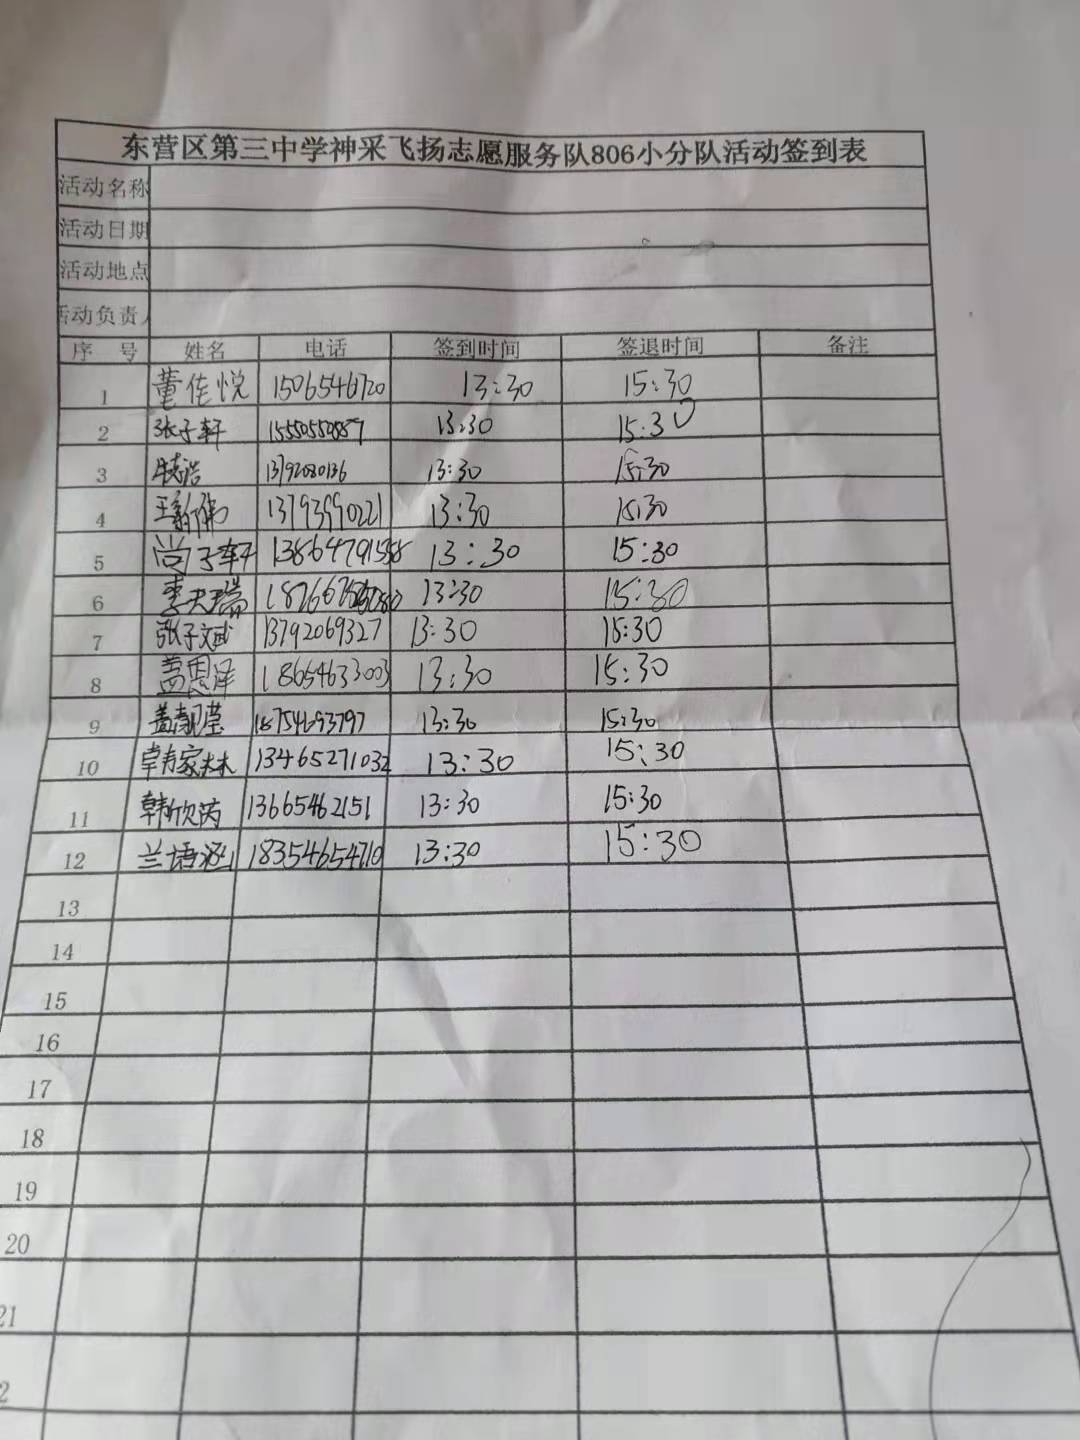 东营区第三中学神采飞扬志愿服务队806小分队活动签到表
活动名称
活动日期
活动地点
活动负责人
序 号 姓名 电话 签到时间 签退时间 备注
1 董佳悦 13:30 15:30
2 张子轩 13:30 15:30
3 13792080136 13:30 15:30
4 13793990221 13:30 15:30
5 尚子轩 13:30 15:30
6 李天瑞 13:30 15:30
7 张子文武 13792069327 13:30 15:30
8 盖恩泽 18654633003 13:30 15:30
9 盖靓莹 18754693797 13:30 15:30
10 13465271032 13:30 15:30
11 韩欣芮 13665462151 13:30 15:30
12 兰语涵 18354654710 13:30 15:30
13
14
15
16
17
18
19
20
21
2